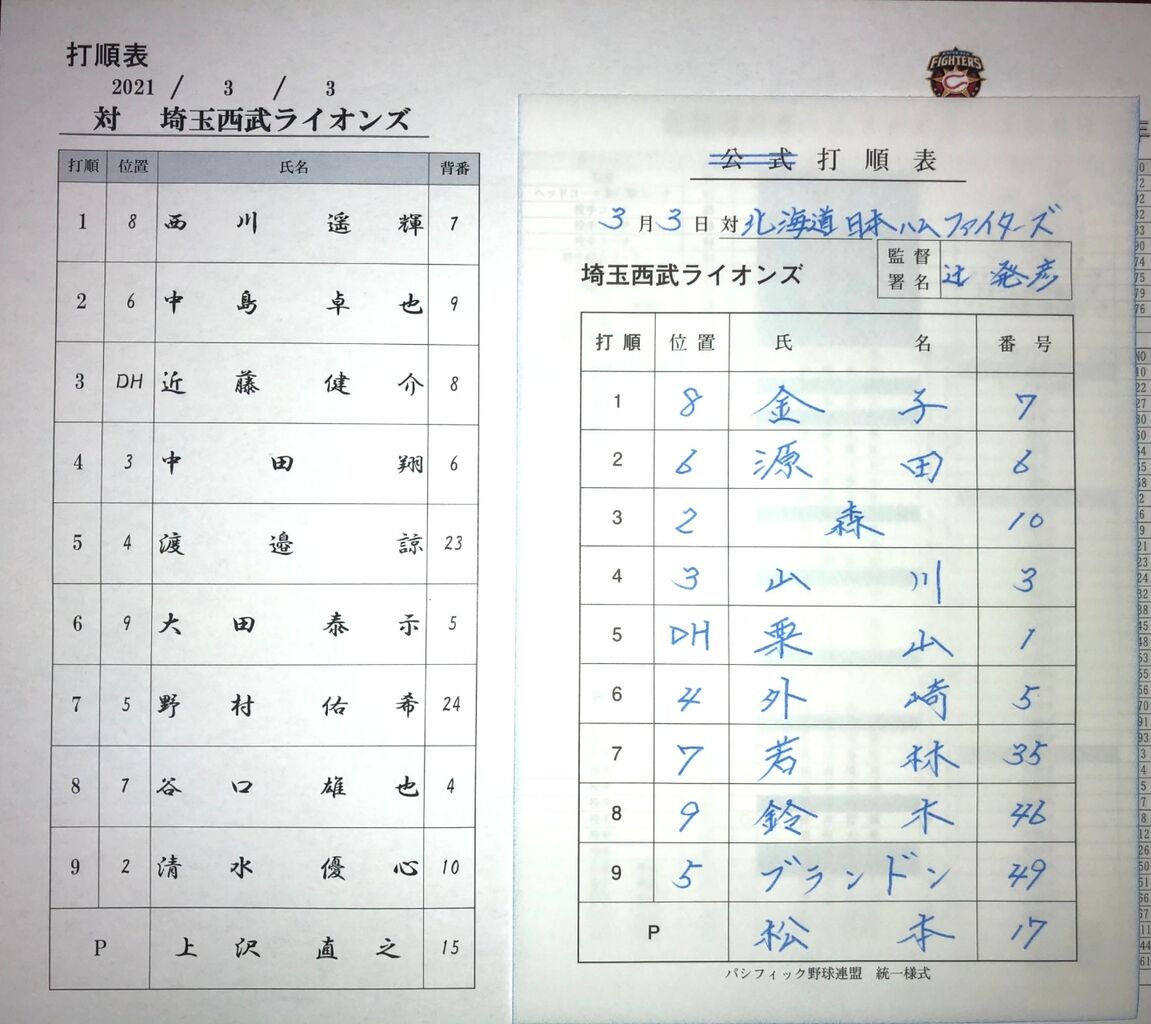 打順表
2021 / 3 / 3
対 埼玉西武ライオンズ
打順 位置 氏名 背番
1 8 西川遥輝 7
2 6 中島卓也 9
3 DH 近藤健介 8
4 3 中田翔 6
5 4 渡邉諒 23
6 9 大田泰示 5
7 5 野村佑希 24
8 7 谷口雄也 4
9 2 清水優心 10
P 上沢直之 15
FIGHTERS
公式打順表
3月3日 対 北海道日本ハムファイターズ
埼玉西武ライオンズ
監督署名 辻 発彦
打順 位置 氏名 番号
1 8 金子 7
2 6 源田 6
3 2 森 10
4 3 山川 3
5 DH 栗山 1
6 4 外崎 5
7 7 若林 35
8 9 鈴木 46
9 5 ブランドン 49
P 松本 17
パシフィック野球連盟 統一様式